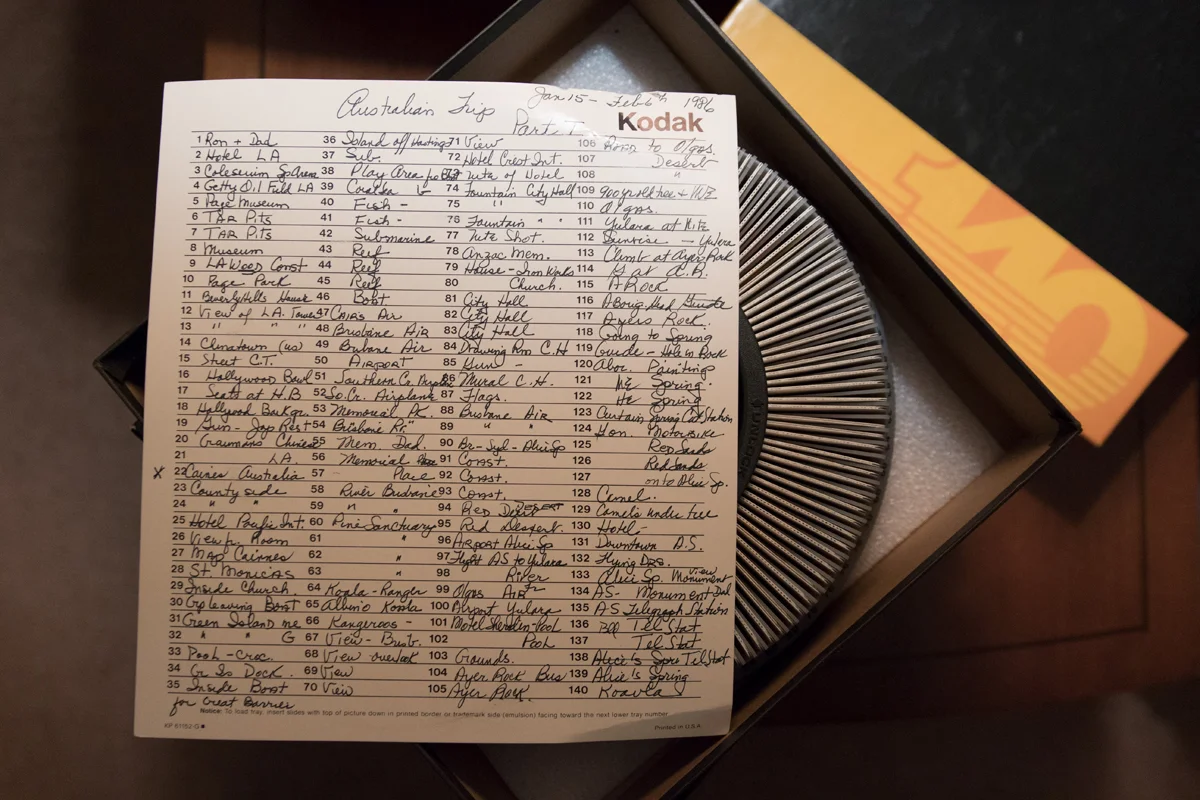 Australian Trip
Jan 15 - Feb 6th 1986
Part I
Kodak
1 Ron + Dad
2 Hotel LA
3 Coleseum Sp Arena
4 Getty Oil Field LA
5 Page Museum
6 TAR Pits
7 TAR Pits
8 Museum
9 LA West Const
10 Page Park
11 Beverly Hills House
12 View of L.A. Tower
13 " " "
14 Chinatown (us)
15 Street C.T.
16 Hollywood Bowl
17 Seats at H.B
18 Hollywood
19 Jap Rest
20 Graumans Chinese
21 LA.
X 22 Cairns Australia
23 County side
24 " "
25 Hotel Pacific Int.
26 View fr. Room
27 Map Cairnes
28 St. Monicas
29 Inside Church.
30 Gp leaving Boat
31 Green Island me
32 " " G
33 Pool - Croc.
34 Gr Is Dock.
35 Inside Boat
for Great Barrier
36 Island off Hastings
37 Sub.
38 Play Area
39
40 Fish -
41 Fish -
42 Submarine
43 Reef
44 Reef
45 Reef
46 Boat
47 Cairs Air
48 Brisbane Air
49 Brisbane Air
50 AIRPORT
51 Southern Cr. Airplane
52 So. Cr. Airplane
53 Memorial Pk.
54 Brisbane "
55 Mem. Dad
56 Memorial Place
57 Place
58 River Brisbane
59 " "
60 Pine Sanctuary
61 "
62 "
63 "
64 Koala - Ranger
65 Albino Koala
66 Kangeroos -
67 View - Brisb.
68 View overlook
69 View
70 View
71 View
72 Hotel Crest Int.
73 of Hotel
74 Fountain City Hall
75 " "
76 Fountain " "
77 Nite Shot.
78 Anzac Mem.
79 House - Iron Works
80 Church.
81 City Hall
82 City Hall
83 City Hall
84 Drawing Rm C.H
85 "
86 Mural C.H.
87 Flags.
88 Brisbane Air
89 " "
90 Br - Syd - Alice Sp
91 Const.
92 Const.
93 Const.
94 Red Desert
95 Red Dessert.
96 Airport Alice Sp
97 Flight AS to Yulara
98 River
99 Olgas Air
100 Airport Yulara
101 Motel Sheraton-Pool
102 Pool
103 Grounds.
104 Ayer Rock Bus
105 Ayer Rock.
106 Road to Olgas.
107 Desert
108 "
109 900 yr old tree +
110 Olgas.
111 Yulara at Nite
112 Sunrise - Yulara
113 Climb at Ayer Rock
114 at A.R.
115 A Rock
116 Guide
117 Ayers Rock.
118 Going to Spring
119 Guide - Hole in Rock
120 Abor. Paintings
121 Spring
122 Spring
123 Curtain Spring Cat Station
124 Hon. Motorbike
125 Red Sands
126 Red Sands
127 on to Alice Sp.
128 Camel.
129 Camels under tree
130 Hotel -
131 Downtown A.S.
132 Flying DRS.
133 Alice Sp. View Monument
134 AS - Monument Dad
135 A.S Telegraph Station
136 Tel Stat
137 Tel. Stat
138 Alice's Spri Tel Stat
139 Alice's Spring
140
Notice: To load tray, insert slides with top of picture down in printed border or trademark side (emulsion) facing toward the next lower tray number
KP 61152-G
Printed in U.S.A.